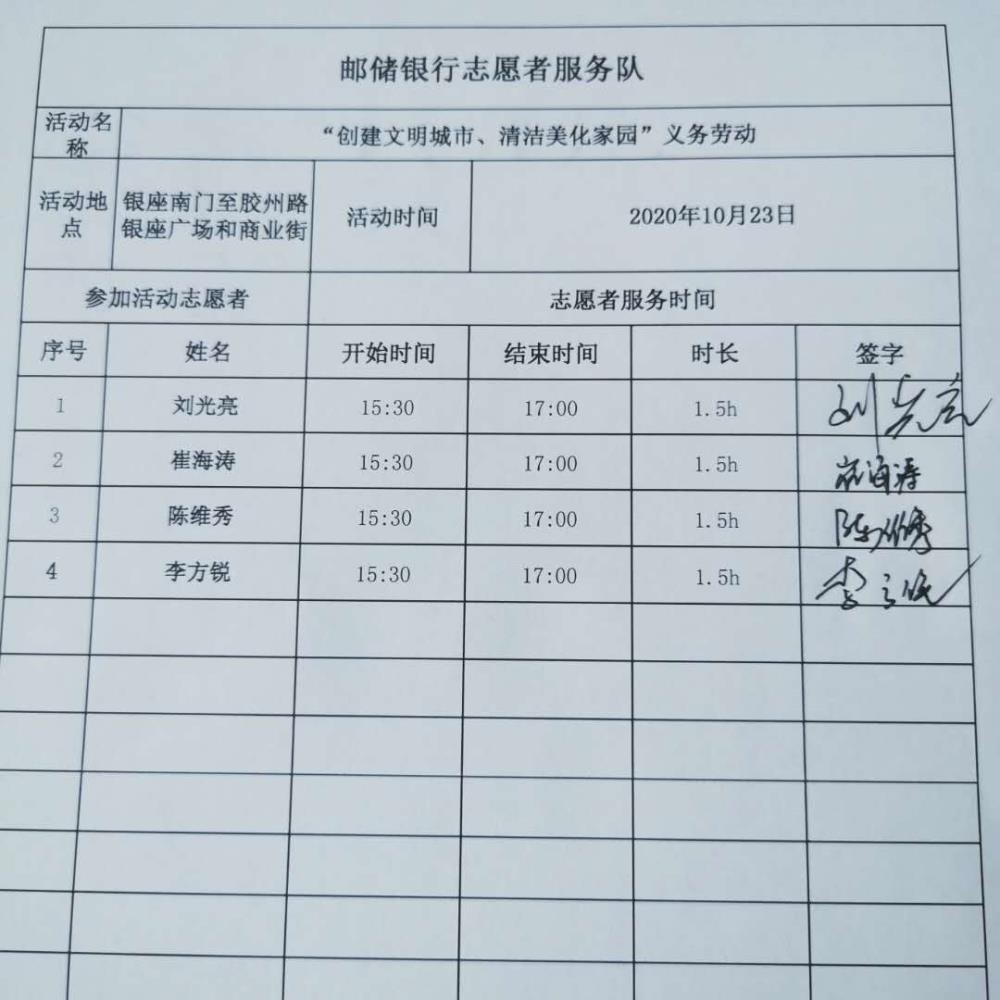 邮储银行志愿者服务队
活动名称 “创建文明城市、清洁美化家园”义务劳动
活动地点 银座南门至胶州路银座广场和商业街 活动时间 2020年10月23日
参加活动志愿者 志愿者服务时间
序号 姓名 开始时间 结束时间 时长 签字
1 刘光亮 15:30 17:00 1.5h 刘光亮
2 崔海涛 15:30 17:00 1.5h 崔海涛
3 陈维秀 15:30 17:00 1.5h 陈维秀
4 李方锐 15:30 17:00 1.5h 李方锐